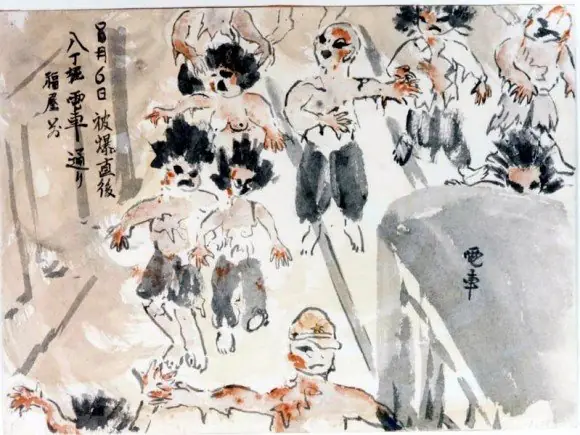 8月6日 被爆直後
八丁堀 電車通り
福屋前
電車